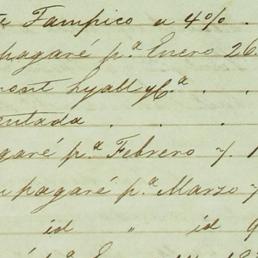 Tampico a 4%.
pagaré p.ª Enero 26
Lyall y Cª
pagaré p.ª Febrero 7.
pagaré p.ª Marzo 7
id " id 9